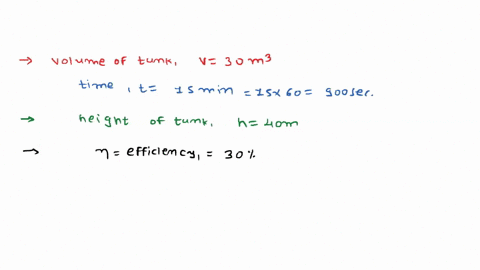 → volume of tunk, v= 30m³
time, t= 15min =15x60= 900sec.
→ height of tunk, h= 40m
→ η= efficiency, = 30%